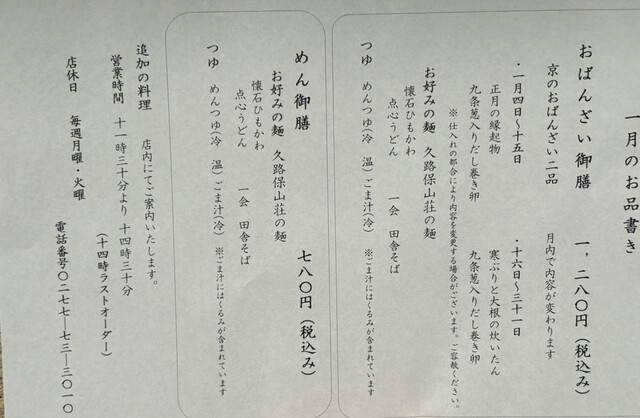 一月のお品書き
おばんざい御膳　一，二八〇円（税込み）
京のおばんざい二品　月内で内容が変わります
・一月四日～十五日　・十六日～三十一日
正月の縁起物　寒ぶりと大根の炊いたん
九条葱入りだし巻き卵　九条葱入りだし巻き卵
※仕入れの都合により内容を変更する場合がございます。ご容赦ください。
お好みの麺　久路保山荘の麺
懐石ひもかわ
点心うどん　一会　田舎そば
つゆ　めんつゆ（冷　温）ごま汁（冷）※ごま汁にはくるみが含まれています
めん御膳　七八〇円（税込み）
お好みの麺　久路保山荘の麺
懐石ひもかわ
点心うどん　一会　田舎そば
つゆ　めんつゆ（冷　温）ごま汁（冷）※ごま汁にはくるみが含まれています
追加の料理　店内にてご案内いたします。
営業時間　十一時三十分より十四時三十分
（十四時ラストオーダー）
店休日　毎週月曜・火曜
電話番号〇二七七―七三―三〇一〇